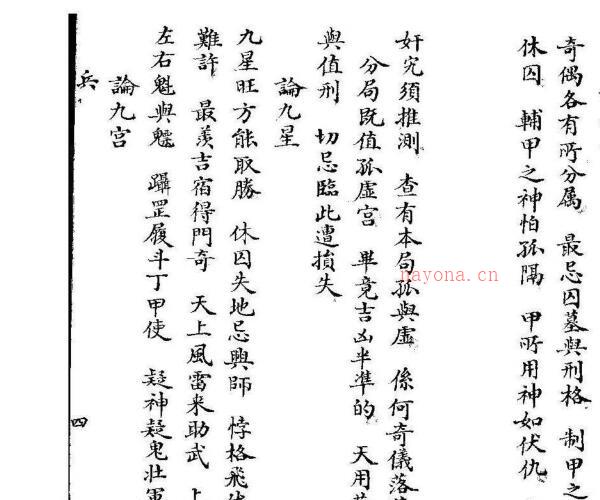 奇偶各有所分属 最忌囚墓與刑格 制甲之
休囚 輔甲之神怕孤隔 甲所用神如伏仇
奸宄須推測 查有本局孤與虛 係何奇儀落
分局既值孤虛宮 畢竟吉凶半準的 天用
與值刑 切忌臨此遭損失
論九星
九星旺方能取勝 休囚失地忌興師 悖格飛
難許 最羨吉宿得門奇 天上風雷来助武 上
左右魁與魒 躡罡履斗丁甲使 疑神疑鬼壮軍
論九宫
兵
四
nayona.cn